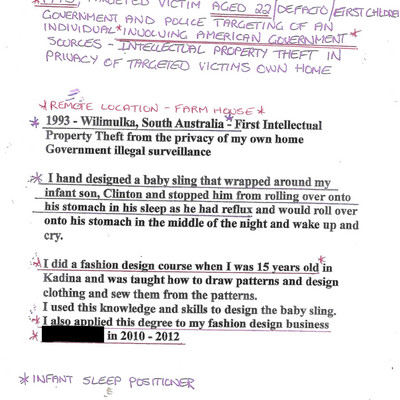 * 1993, TARGETED VICTIM AGED 22/DEFACTO/FIRST CHILD(REN
GOVERNMENT AND POLICE TARGETING OF AN
INDIVIDUAL *INVOLVING AMERICAN GOVERNMENT *
SOURCES - INTELLECTUAL PROPERTY THEFT IN
PRIVACY OF TARGETED VICTIMS OWN HOME
*REMOTE LOCATION - FARM HOUSE*
* 1993 - Wilimulka, South Australia - First Intellectual
Property Theft from the privacy of my own home
Government illegal surveillance
* I hand designed a baby sling that wrapped around my
infant son, Clinton and stopped him from rolling over onto
his stomach in his sleep as he had reflux and would roll over
onto his stomach in the middle of the night and wake up and
cry.
*I did a fashion design course when I was 15 years old* in
Kadina and was taught how to draw patterns and design
clothing and sew them from the patterns.
I used this knowledge and skills to design the baby sling.
*I also applied this degree to my fashion design business
* in 2010 - 2012
*INFANT SLEEP POSITIONER